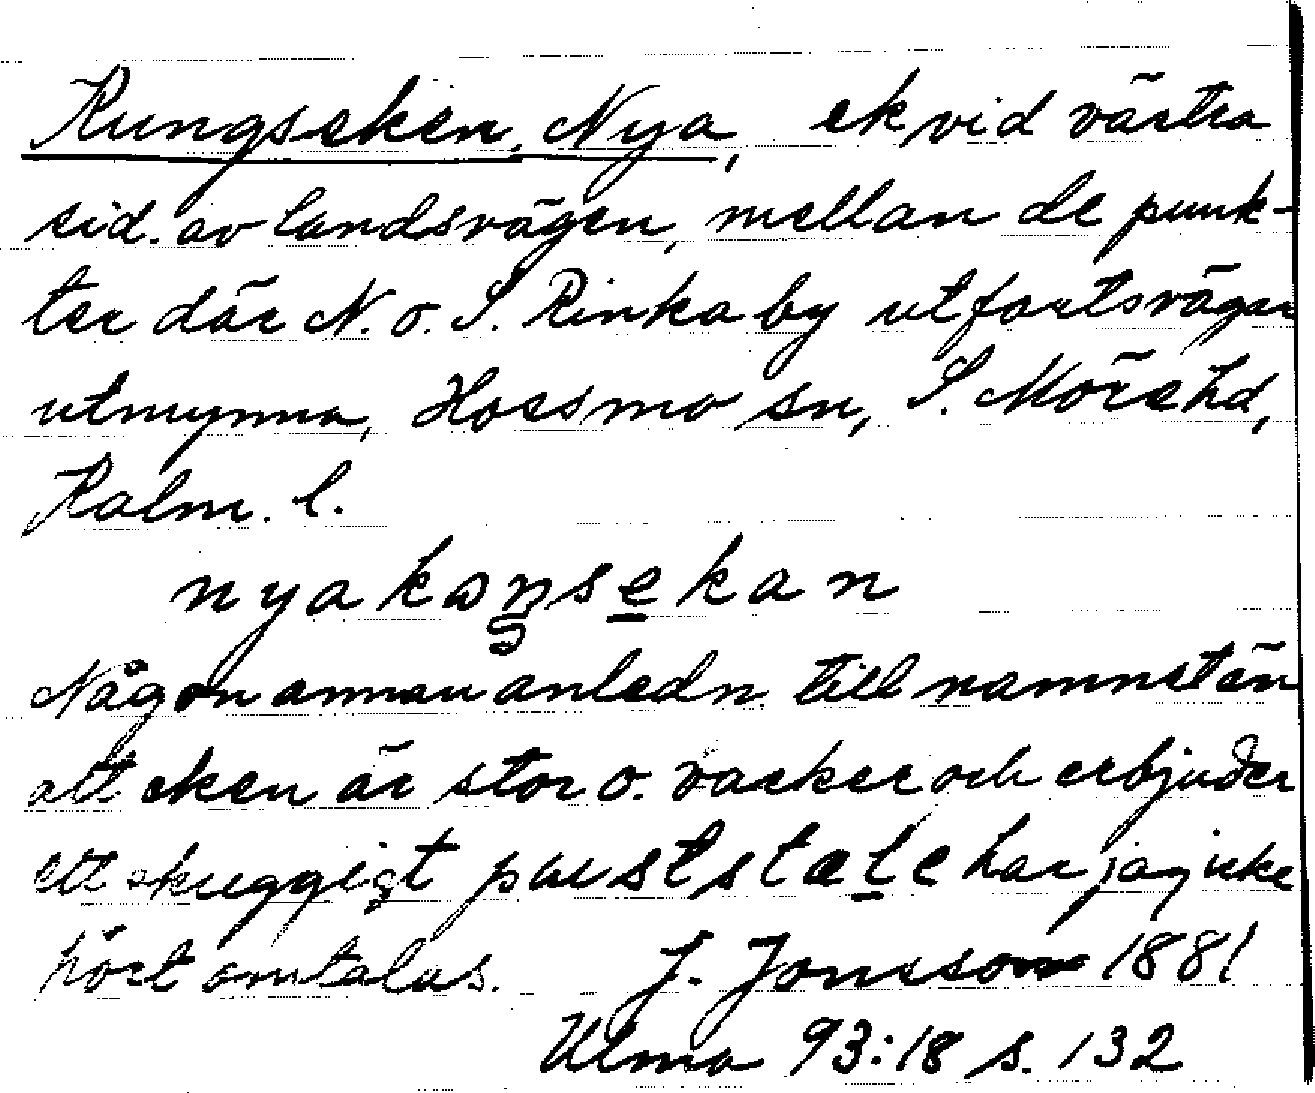 Kungseken, Nya, ek vid västra
sid. av landsvägen, mellan de punk-
ter där N. o. S. Rinkaby utfartsvägar
utmynna, Hossmo sn, S. Möre hd,
Kalm. l.
nyakaŋsekan
Någon annan anledn. till namnet än
att eken är stor o. vacker och erbjuder
ett skuggigt pauststæle har jag icke
hört omtalas. J. Jonsson 1881
Ulma 93:18 s. 132